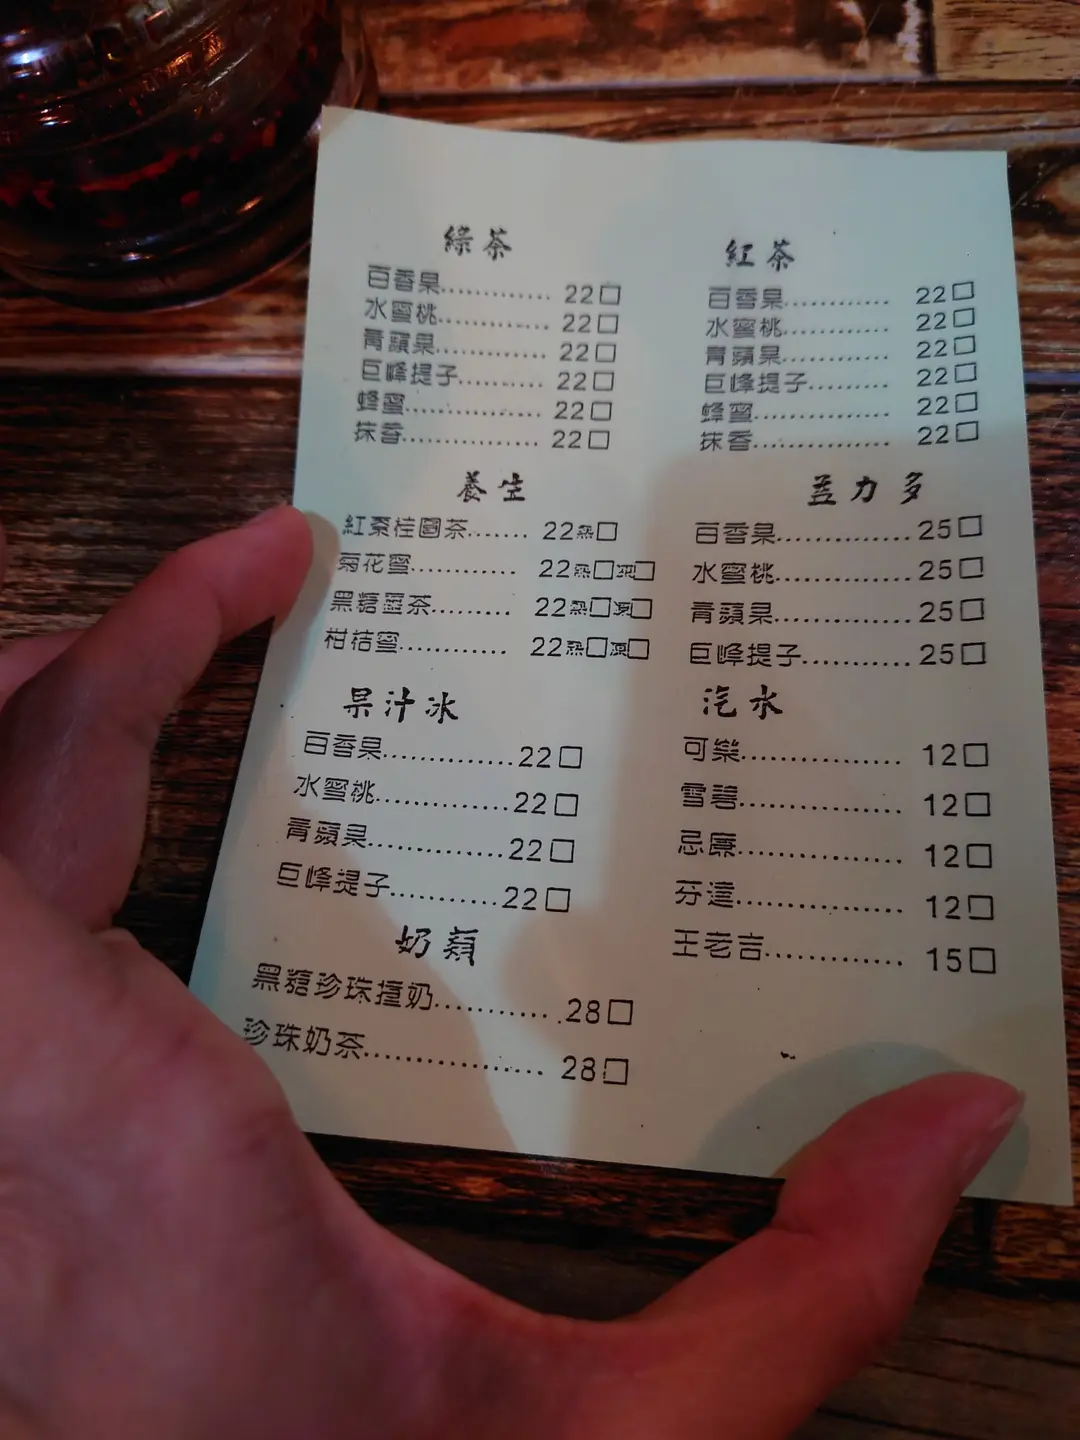 綠茶
百香果............ 22□
水蜜桃............ 22□
青蘋果............ 22□
巨峰提子......... 22□
蜂蜜.............. 22□
抹香.............. 22□
養生
紅棗桂圓茶....... 22熱□
菊花蜜............ 22熱□凍□
黑糖薑茶......... 22熱□凍□
柑桔蜜............ 22熱□凍□
果汁冰
百香果..............22□
水蜜桃..............22□
青蘋果..............22□
巨峰提子...........22□
奶類
黑糖珍珠撞奶............28□
珍珠奶茶.................. 28□
紅茶
百香果............ 22□
水蜜桃............ 22□
青蘋果............ 22□
巨峰提子......... 22□
蜂蜜............... 22□
抹香............... 22□
益力多
百香果..............25□
水蜜桃..............25□
青蘋果..............25□
巨峰提子...........25□
汽水
可樂................. 12□
雪碧................. 12□
忌廉................. 12□
芬達................. 12□
王老吉.............. 15□